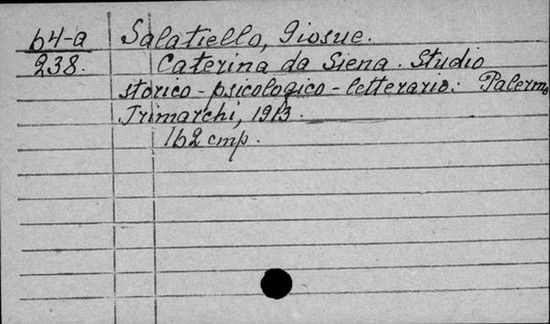 64-a Salatiello, Giosue.
238. Caterina da Siena. Studio
storico-psicologico-letterario. Palermo
Trimarchi, 1913.
162 cmp.